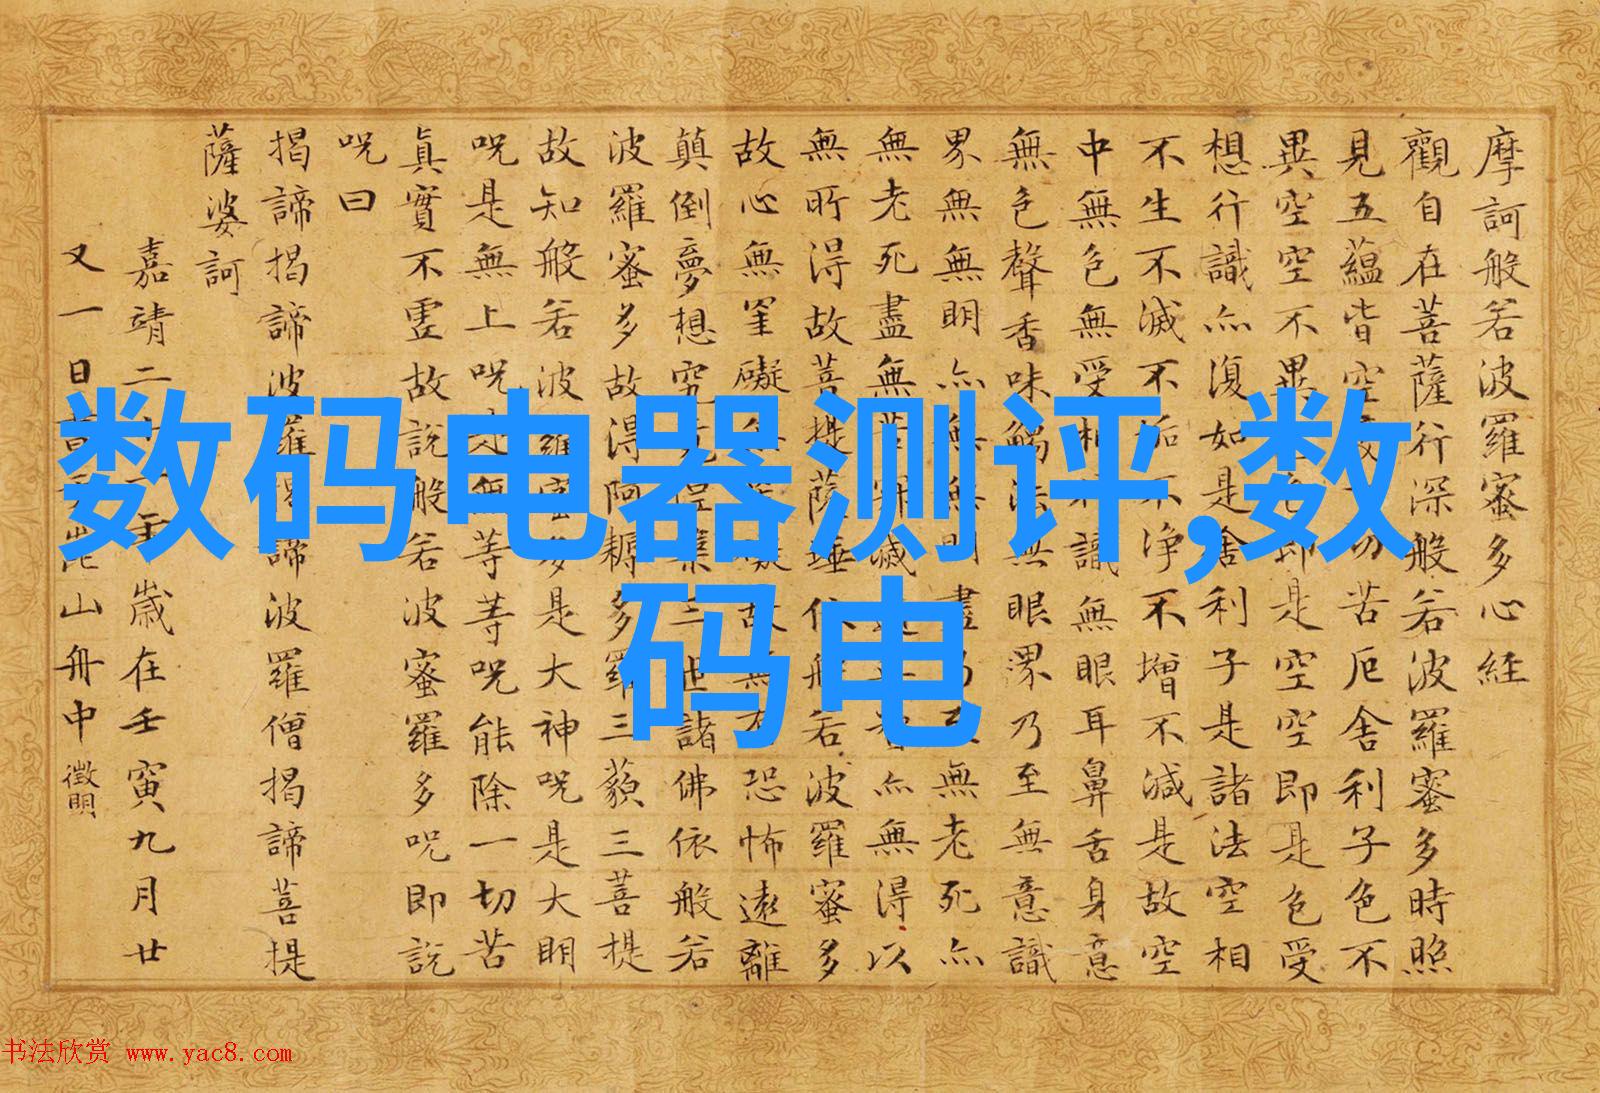 摩訶般若波羅蜜多心經
觀自在菩薩行深般若波羅蜜多時照
見五蘊皆空度一切苦厄舍利子色不
異空空不異色色即是空空即是色受
想行識亦復如是舍利子是諸法空相
不生不滅不垢不淨不增不減是故空
中無色無受想行識無眼耳鼻舌身意
無色聲香味觸法無眼界乃至無意識
界無無明亦無無明盡乃至無老死亦
無老死盡無苦集滅道無智亦無得以
無所得故菩提薩埵依般若波羅蜜多
故心無罣礙無罣礙故無有恐怖遠離
顛倒夢想究竟涅槃三世諸佛依般若
波羅蜜多故得阿耨多羅三藐三菩提
故知般若波羅蜜多是大神呪是大明
呪是無上呪是無等等呪能除一切苦
真實不虛故說般若波羅蜜多呪即說
呪曰
揭諦揭諦波羅揭諦波羅僧揭諦菩提
薩婆訶
嘉靖二十一年歲在壬寅九月廿
又一日書山舟中 徵明
数码电器测评,数
码电
书法欣赏 www.yac8.com